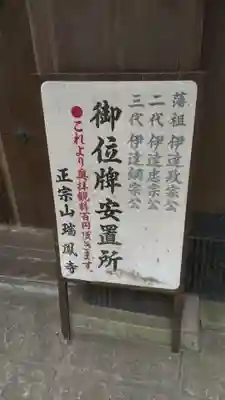 藩祖 伊達政宗公
二代 伊達忠宗公
三代 伊達綱宗公
御位牌安置所
●これより奥拝観料百円頂きます。
正宗山瑞鳳寺